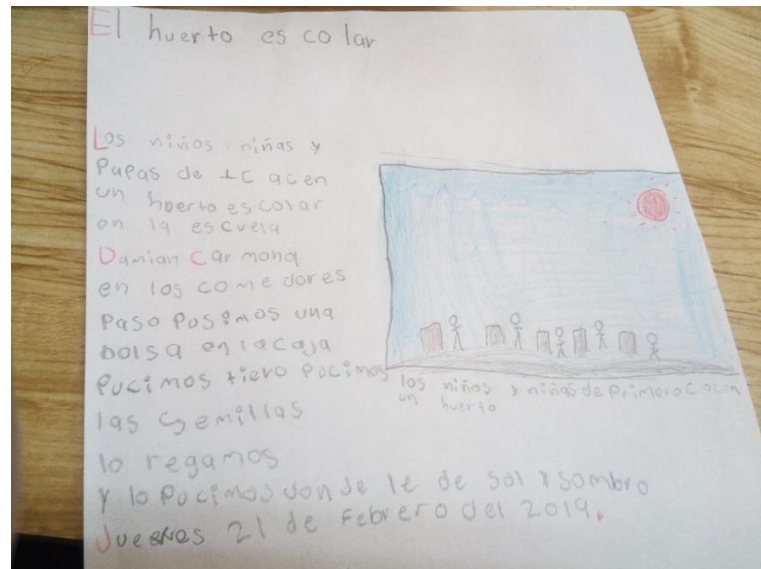 El huerto es colar
Los niños niñas y
Papas de 1C acen
un huerto escolar
en la escuela
Damian Carmona
en los comedores
Paso Posimos una
bolsa en la caja
Pucimos tiero Pucimos
las semillas
lo regamos
y lo Pucimos donde le de sol y sombro
Jueves 21 de Febrero del 2019.
los niños y niñas de Primero C acen
un huerto